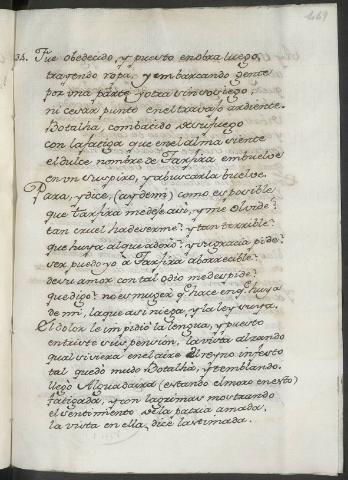 169
34. Fue obedecido, y puesto en obra luego,
trayendo ropa, y embarcando gente
por una parte y otra sin sosiego,
ni cesar punto en el travajo ardiente.
Botalha, combatido de su fuego
con la fatiga que en el alma siente
el dulce nombre de Tarfira embuelve
en un suspiro, y a buscarla buelve.
Para, y dice, (ay de mi) como es posible
que Tarfira me deje asi, y me olvide?
tan cruel ha de serme? y tan terrible
que huya al que adoro? y su gracia pide?
ser puedo yo a Tarfira aborrecible?
de su amor con tal odio me despide?
que digo? no es muger q. hace en q. huya
de mi, la que asi niega, y la ley suya.
El dolor le impidió la lengua, y puesto
en triste suspension, la vista alzando
qual si viera en el aire el reyno infesto
tal quedó mudo Botalha, y temblando.
llegó Alguadaira (estando el moro en esto)
fatigada, y con lagrimas mostrando
el sentimiento de la patria amada,
la vista en ella, dice lastimada.